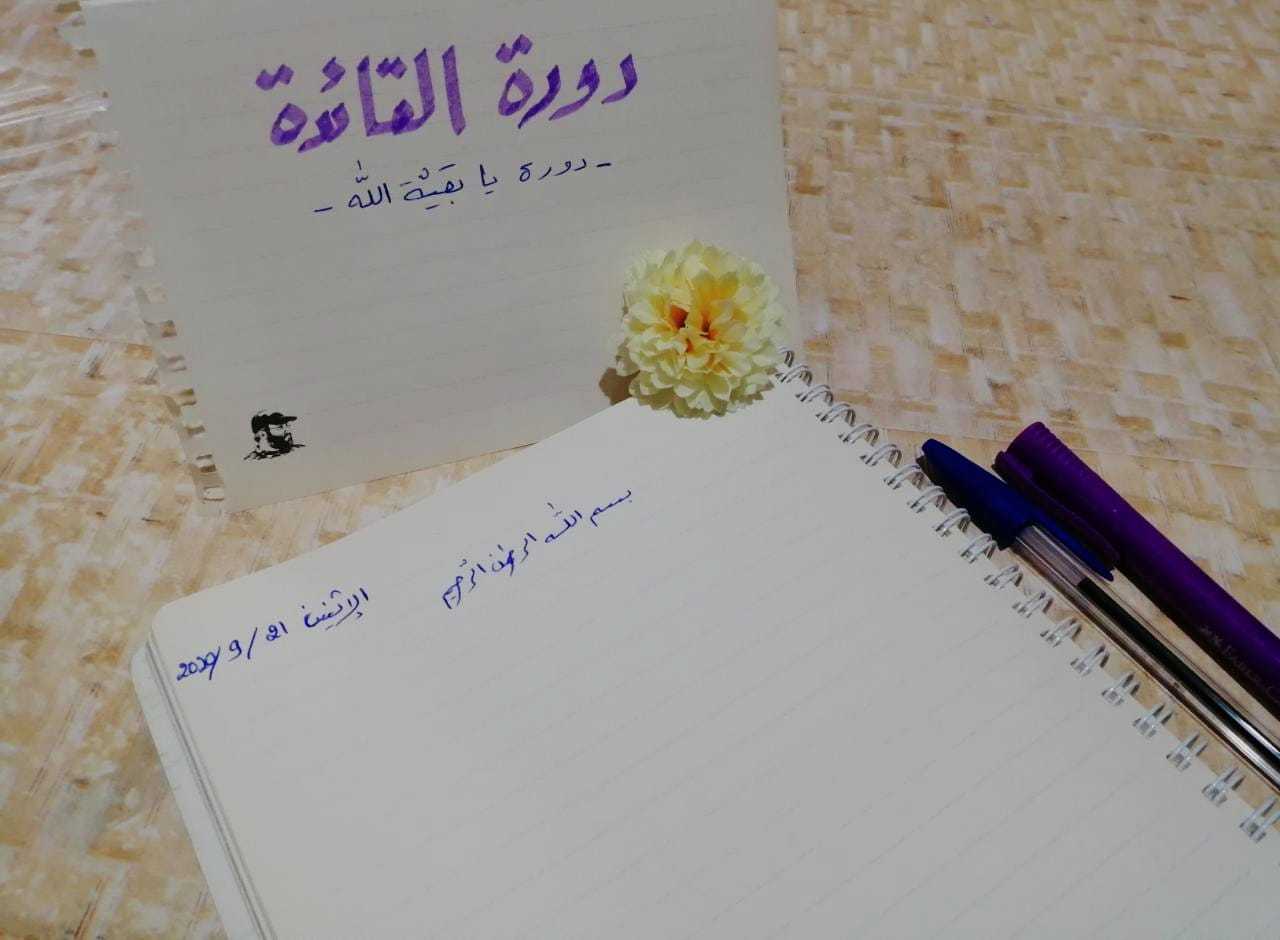 دورة القائدة
- دورة يا بقيّة الله -
بسم الله الرحمن الرحيم
الإثنين 21 / 9 / 2020